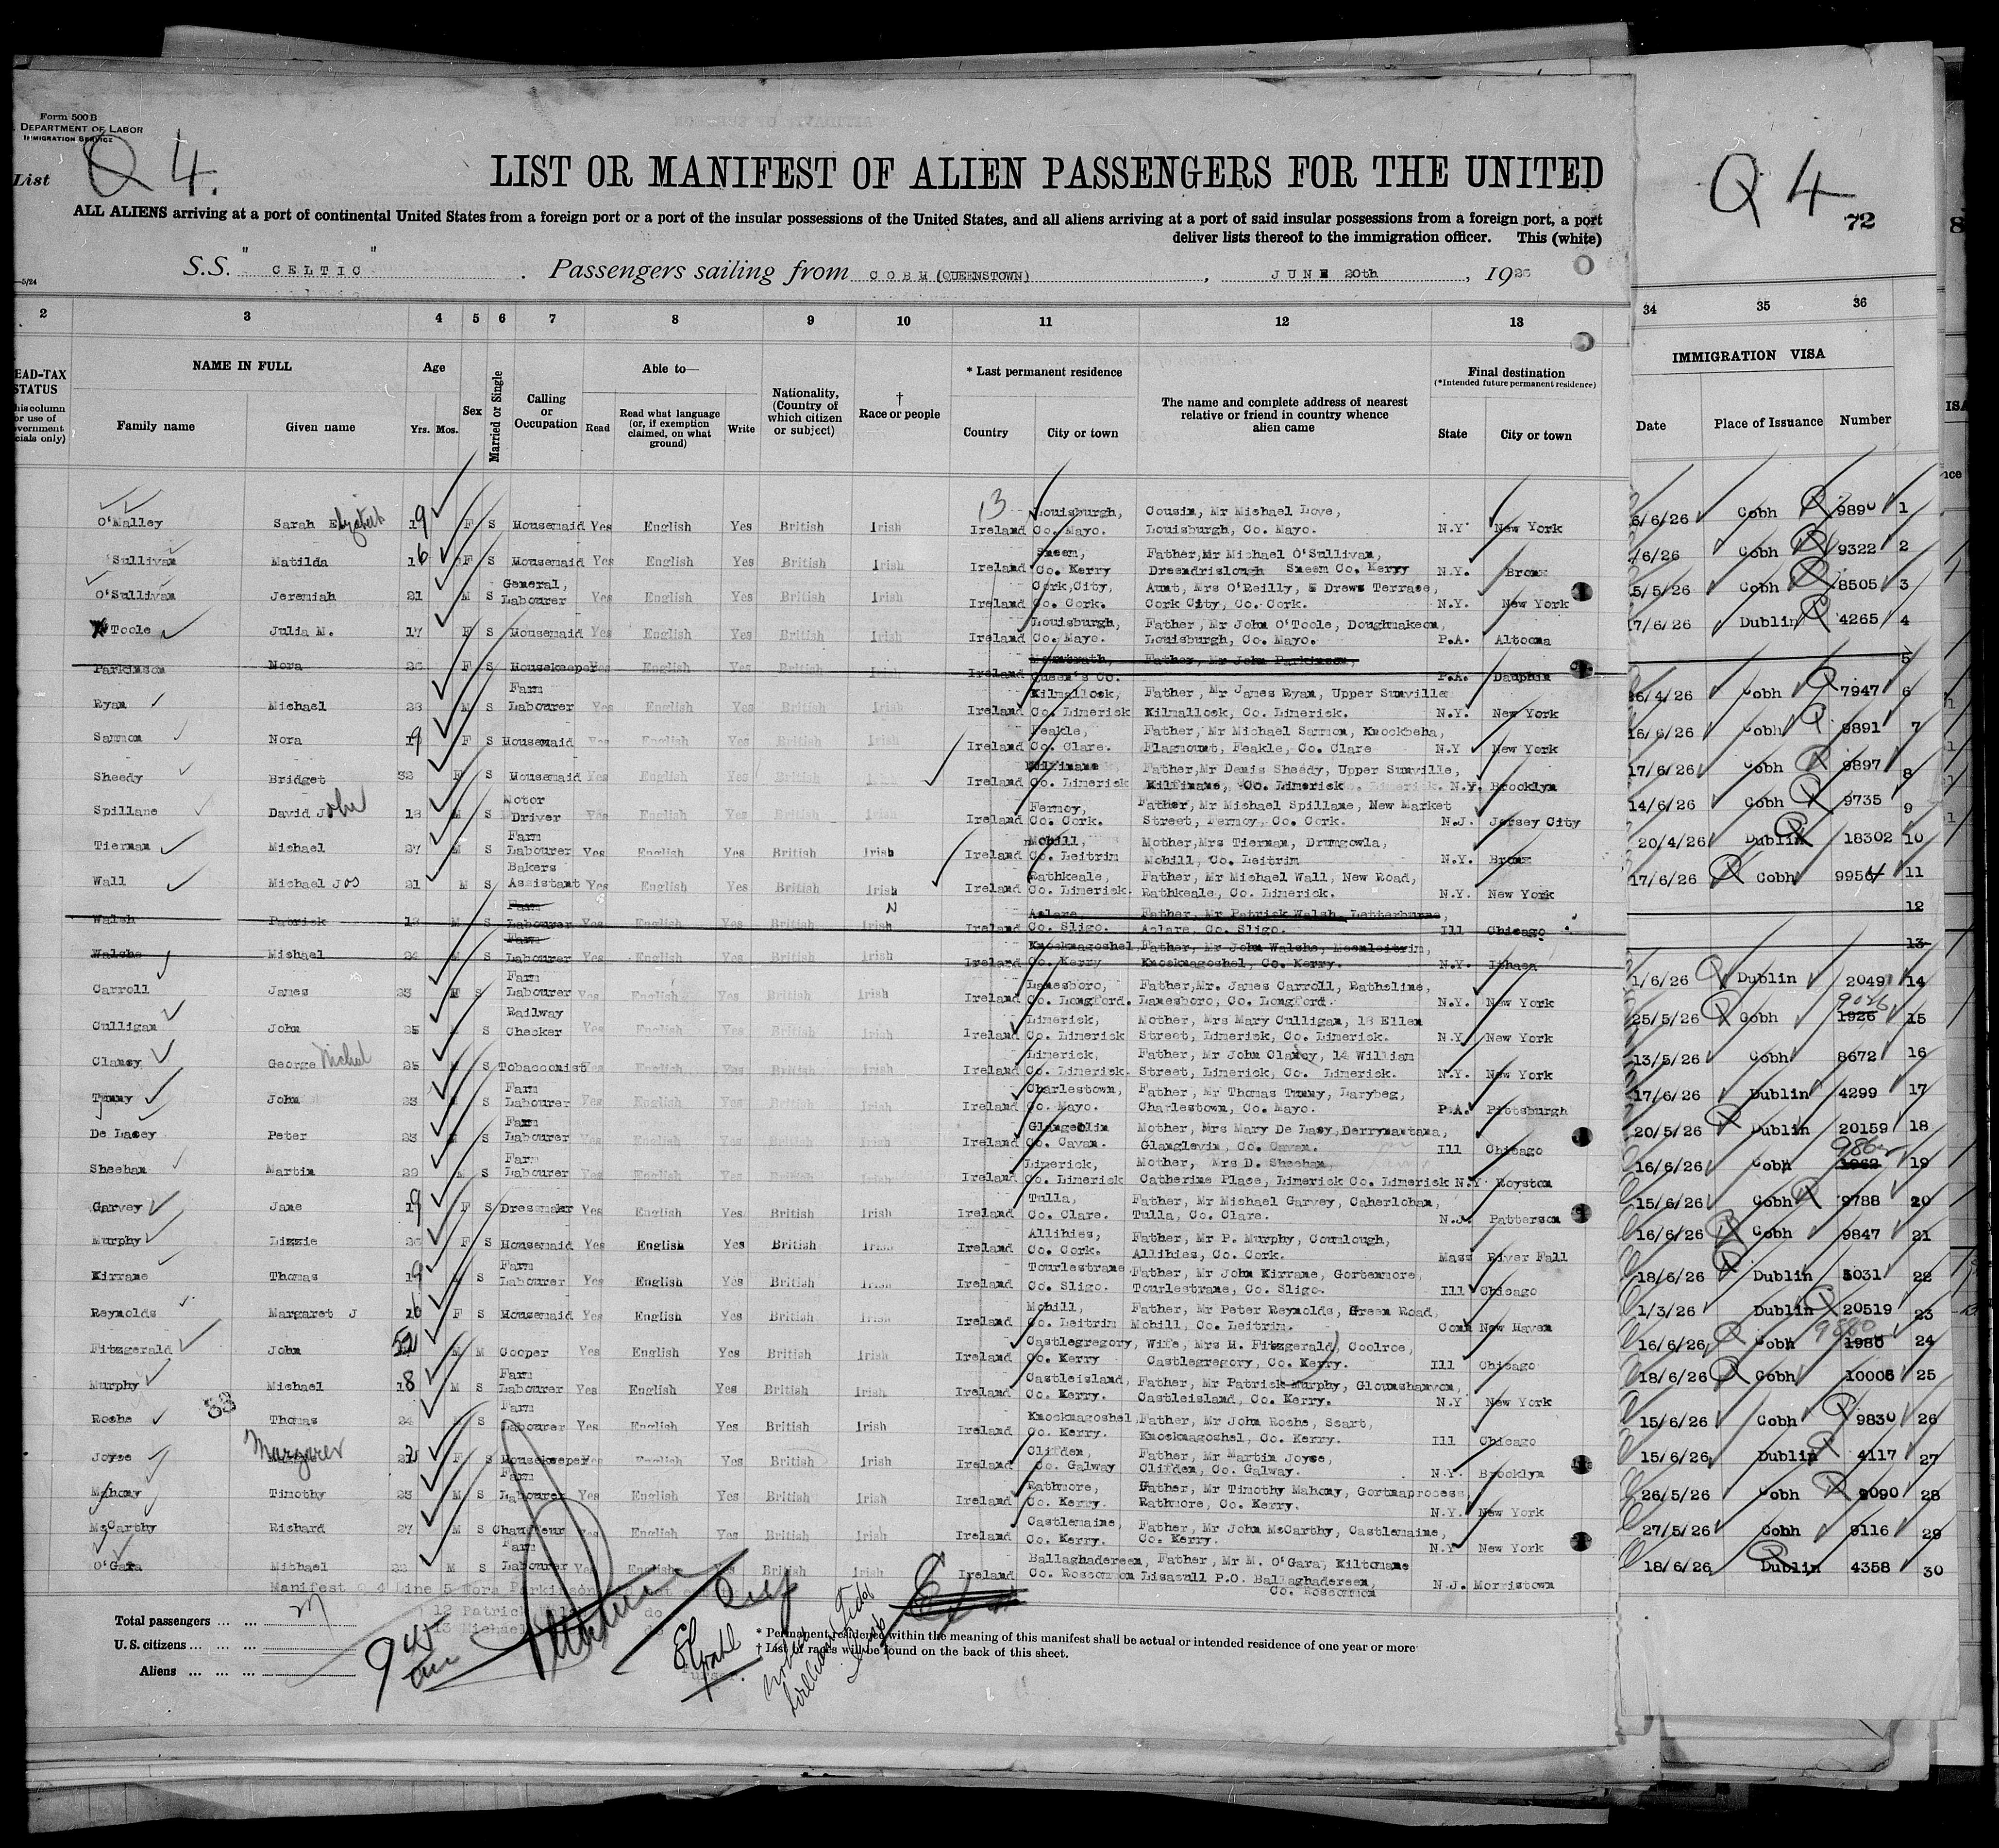 Form 500 B
DEPARTMENT OF LABOR
IMMIGRATION SERVICE
List Q 4.
LIST OR MANIFEST OF ALIEN PASSENGERS FOR THE UNITED
ALL ALIENS arriving at a port of continental United States from a foreign port or a port of the insular possessions of the United States, and all aliens arriving at a port of said insular possessions from a foreign port, a port
deliver lists thereof to the immigration officer. This (white)
S.S. "CELTIC" . Passengers sailing from COBH (QUEENSTOWN), JUNE 20th, 1926
Q 4
72
2 3 4 5 6 7 8 9 10 11 12 13 34 35 36
NAME IN FULL
Family name Given name
Age
Yrs. Mos.
Sex
Married or Single
Calling or Occupation
Able to—
Read
Read what language (or, if exemption claimed, on what ground)
Write
Nationality, (Country of which citizen or subject)
† Race or people
* Last permanent residence
Country City or town
The name and complete address of nearest relative or friend in country whence alien came
Final destination
(*Intended future permanent residence)
State City or town
IMMIGRATION VISA
Date Place of Issuance Number
O'Malley Sarah Elizabeth 19 F S Housemaid Yes English Yes British Irish Ireland Louisburgh, Co. Mayo. Cousin, Mr Michael Love, Louisburgh, Co. Mayo. N.Y. New York 6/6/26 Cobh 9890 1
'Sullivan Matilda 16 F S Housemaid Yes English Yes British Irish Ireland Sneem, Co. Kerry Father, Mr Michael O'Sullivan, Dreendrislough Sneem Co. Kerry N.Y. Bronx /6/26 Cobh 9322 2
O'Sullivan Jeremiah 21 M S General, Labourer Yes English Yes British Irish Ireland Cork, City, Co. Cork. Aunt, Mrs O'Reilly, 5 Drews Terrase, Cork City, Co. Cork. N.Y. New York 5/5/26 Cobh 8505 3
Toole Julia M. 17 F S Housemaid Yes English Yes British Irish Ireland Louisburgh, Co. Mayo. Father, Mr John O'Toole, Doughmakeon, Louisburgh, Co. Mayo. P.A. Altoona 17/6/26 Dublin 4265 4
Parkinson Nora 26 F S Housekeeper Yes English Yes British Irish Ireland Mountrath, Queen's Co. Father, Mr John Parkinson, P.A. Dauphin 5
Ryan Michael 28 M S Farm Labourer Yes English Yes British Irish Ireland Kilmallock, Co. Limerick Father, Mr James Ryan, Upper Sunville Kilmallock, Co. Limerick. N.Y. New York 26/4/26 Cobh 7947 6
Sammon Nora 19 F S Housemaid Yes English Yes British Irish Ireland Feakle, Co. Clare. Father, Mr Michael Sammon, Knockbeha, Flagmount, Feakle, Co. Clare N.Y New York 16/6/26 Cobh 9891 7
Sheedy Bridget 32 F S Housemaid Yes English Yes British Irish Ireland Kilfinane Co. Limerick Father, Mr Denis Sheedy, Upper Sunville, Kilfinane, Co. Limerick N.Y. Brooklyn 17/6/26 Cobh 9897 8
Spillane David John 18 M S Motor Driver Yes English Yes British Irish Ireland Fermoy, Co. Cork. Father, Mr Michael Spillane, New Market Street, Fermoy, Co. Cork. N.J. Jersey City 14/6/26 Cobh 9735 9
Tiernan Michael 27 M S Farm Labourer Yes English Yes British Irish Ireland Mohill, Co. Leitrim Mother, Mrs Tiernan, Drumgowla, Mohill, Co. Leitrim N.Y. Bronx 20/4/26 Dublin 18302 10
Wall Michael Jos 21 M S Bakers Assistant Yes English Yes British Irish Ireland Rathkeale, Co. Limerick. Father, Mr Michael Wall, New Road, Rathkeale, Co. Limerick. N.Y. New York 17/6/26 Cobh 9956 11
Walsh Patrick 18 M S Farm Labourer Yes English Yes British Irish Ireland Aclare, Co. Sligo. Father, Mr Patrick Walsh, Letterburne, Aclare, Co. Sligo. Ill Chicago 12
Walshe Michael 24 M S Farm Labourer Yes English Yes British Irish Ireland Knocknagoshel Co. Kerry Father, Mr John Walshe, Meenleitrim, Knocknagoshel, Co. Kerry. N.Y. Ithaca 13
Carroll James 23 M S Farm Labourer Yes English Yes British Irish Ireland Lanesboro, Co. Longford. Father, Mr. James Carroll, Ratholine, Lanesboro, Co. Longford. N.Y. New York 1/6/26 Dublin 2049 14
Culligan John 25 S Railway Checker Yes English Yes British Irish Ireland Limerick, Co. Limerick Mother, Mrs Mary Culligan, 18 Ellen Street, Limerick, Co. Limerick. N.Y. New York 25/5/26 Cobh 1926 9026 15
Clancy George Michel 25 M S Tobacconist Yes English Yes British Irish Ireland Limerick, Co. Limerick. Father, Mr John Clancy, 14 William Street, Limerick, Co. Limerick. N.Y. New York 13/5/26 Cobh 8672 16
Tunny John 23 S Farm Labourer Yes English Yes British Irish Ireland Charlestown, Co. Mayo. Father, Mr Thomas Tunny, Larybeg, Charlestown, Co. Mayo. P.A. Pittsburgh 17/6/26 Dublin 4299 17
De Lacey Peter 23 S Farm Labourer Yes English Yes British Irish Ireland Glangeblin Co. Cavan. Mother, Mrs Mary De Lasy, Derrynantana, Glanglevin, Co. Cavan. Ill Chicago 20/5/26 Dublin 20159 18
Sheehan Martin 29 M S Farm Labourer Yes English Yes British Irish Ireland Limerick, Co. Limerick Mother, Mrs D. Sheehan, Catherine Place, Limerick Co. Limerick N.Y Royston 16/6/26 Cobh 1962 9862 19
Garvey Jane 19 F S Dressmaker Yes English Yes British Irish Ireland Tulla, Co. Clare. Father, Mr Michael Garvey, Caherlohan, Tulla, Co. Clare. N.J. Patterson 15/6/26 Cobh 9788 20
Murphy Lizzie 26 F S Housemaid Yes English Yes British Irish Ireland Allihies, Co. Cork. Father, Mr P. Murphy, Coumlough, Allihies, Co. Cork. Mass River Fall 16/6/26 Cobh 9847 21
Kirrane Thomas 19 S Farm Labourer Yes English Yes British Irish Ireland Tourlestrane Co. Sligo. Father, Mr John Kirrane, Gortenmore, Tourlestrane, Co. Sligo. Ill Chicago 18/6/26 Dublin 5031 22
Reynolds Margaret J 16 F S Housemaid Yes English Yes British Irish Ireland Mohill, Co. Leitrim Father, Mr Peter Reynolds, Green Road, Mohill, Co. Leitrim. Conn New Haven 1/3/26 Dublin 20519 23
Fitzgerald John 52 M M Cooper Yes English Yes British Irish Ireland Castlegregory, Co. Kerry Wife, Mrs H. Fitzgerald, Coolroe, Castlegregory, Co. Kerry. Ill Chicago 16/6/26 Cobh 1980 9880 24
Murphy Michael 18 M S Farm Labourer Yes English Yes British Irish Ireland Castleisland, Co. Kerry. Father, Mr Patrick Murphy, Glounshanvon, Castleisland, Co. Kerry. N.Y New York 18/6/26 Cobh 10006 25
Roche Thomas 24 M S Farm Labourer Yes English Yes British Irish Ireland Knocknagoshel Co. Kerry. Father, Mr John Roche, Scart, Knocknagoshel, Co. Kerry. Ill Chicago 15/6/26 Cobh 9830 26
Joyce Margaret F S Housekeeper Yes English Yes British Irish Ireland Clifden, Co. Galway Father, Mr Martin Joyse, Clifden, Co. Galway. N.Y. Brooklyn 15/6/26 Dublin 4117 27
Mahony Timothy 23 M S Farm Labourer Yes English Yes British Irish Ireland Rathmore, Co. Kerry. Father, Mr Timothy Mahony, Gortnaprocess, Rathmore, Co. Kerry. N.Y. New York 26/5/26 Cobh 9090 28
McCarthy Richard 27 M S Chauffeur Yes English Yes British Irish Ireland Castlemaine, Co. Kerry. Father, Mr John McCarthy, Castlemaine, Co. Kerry. N.Y New York 27/5/26 Cobh 9116 29
O'Gara Michael 23 M S Farm Labourer Yes English Yes British Irish Ireland Ballaghadereen, Co. Roscommon Father, Mr M. O'Gara, Kiltomane Lisacull P.O. Ballaghadereen, Co. Roscommon N.J. Morristown 18/6/26 Dublin 4358 30
Manifest Q 4 Line 5 Nora Parkinson
12 Patrick Walsh do
13 Michael do
Total passengers ... ...
U.S. citizens ... ...
Aliens ... ... ...
* Permanent residence within the meaning of this manifest shall be actual or intended residence of one year or more
† List of races will be found on the back of this sheet.